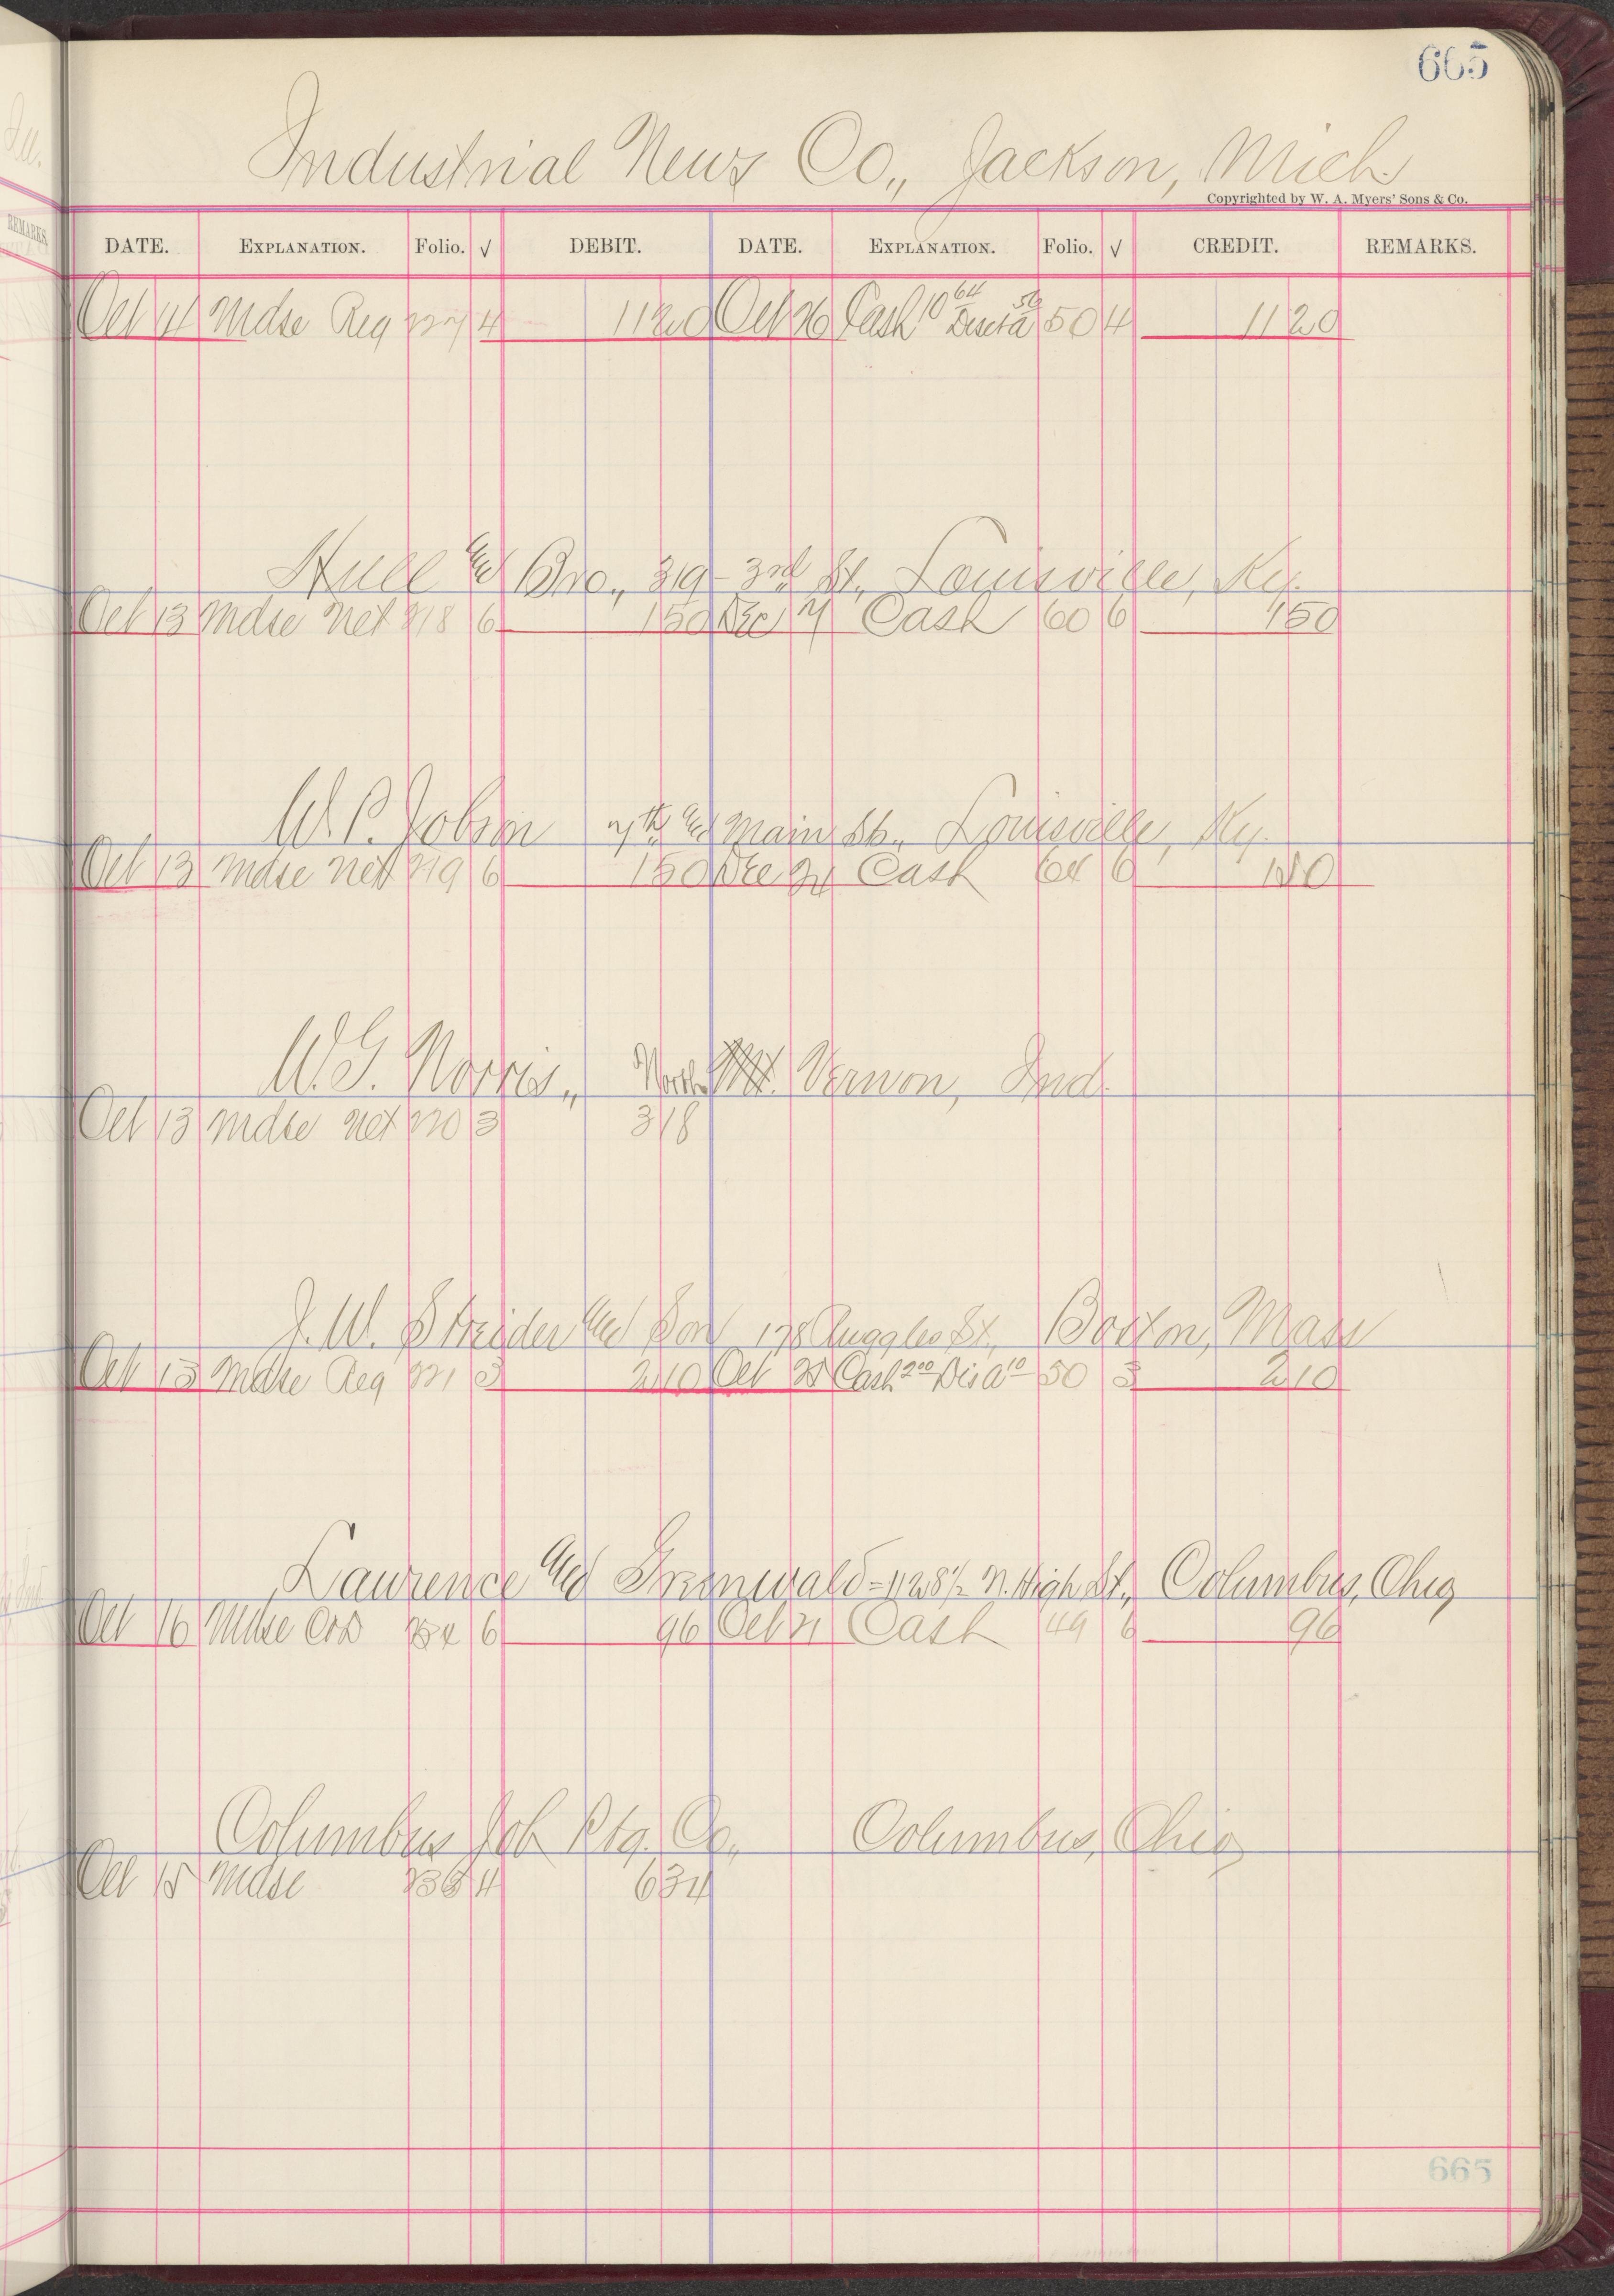 665
Industrial News Co., Jackson, Mich.
Copyrighted by W. A. Myers' Sons & Co.
DATE. EXPLANATION. Folio. √ DEBIT. DATE. EXPLANATION. Folio. √ CREDIT. REMARKS.
Oct 11 Mdse Reg 4 11 20 Oct 26 Cash 10 64 Disct a 56 50 4 11 20
Hull and Bro., 319 - 3rd St., Louisville, Ky.
Oct 13 Mdse Net 218 6 1 50 Dec 7 Cash 60 6 1 50
W. P. Jobson 7th and Main St., Louisville, Ky.
Oct 13 Mdse Net 219 6 1 50 Dec Cash 64 6 1 50
W. G. Norris, North Vernon, Ind.
Oct 13 Mdse Net 220 3 3 18
J. W. Streider and Son 178 Ruggles St., Boston, Mass
Oct 13 Mdse Reg 221 3 2 10 Oct 25 Cash 2 00 Dis a 10 50 3 2 10
Lawrence and Grenwald - 128 1/2 N. High St., Columbus, Ohio
Oct 16 Mdse 6 96 Oct 21 Cash 49 6 96
Columbus Job Ptg. Co., Columbus, Ohio
Oct 15 Mdse 4 6 34
665